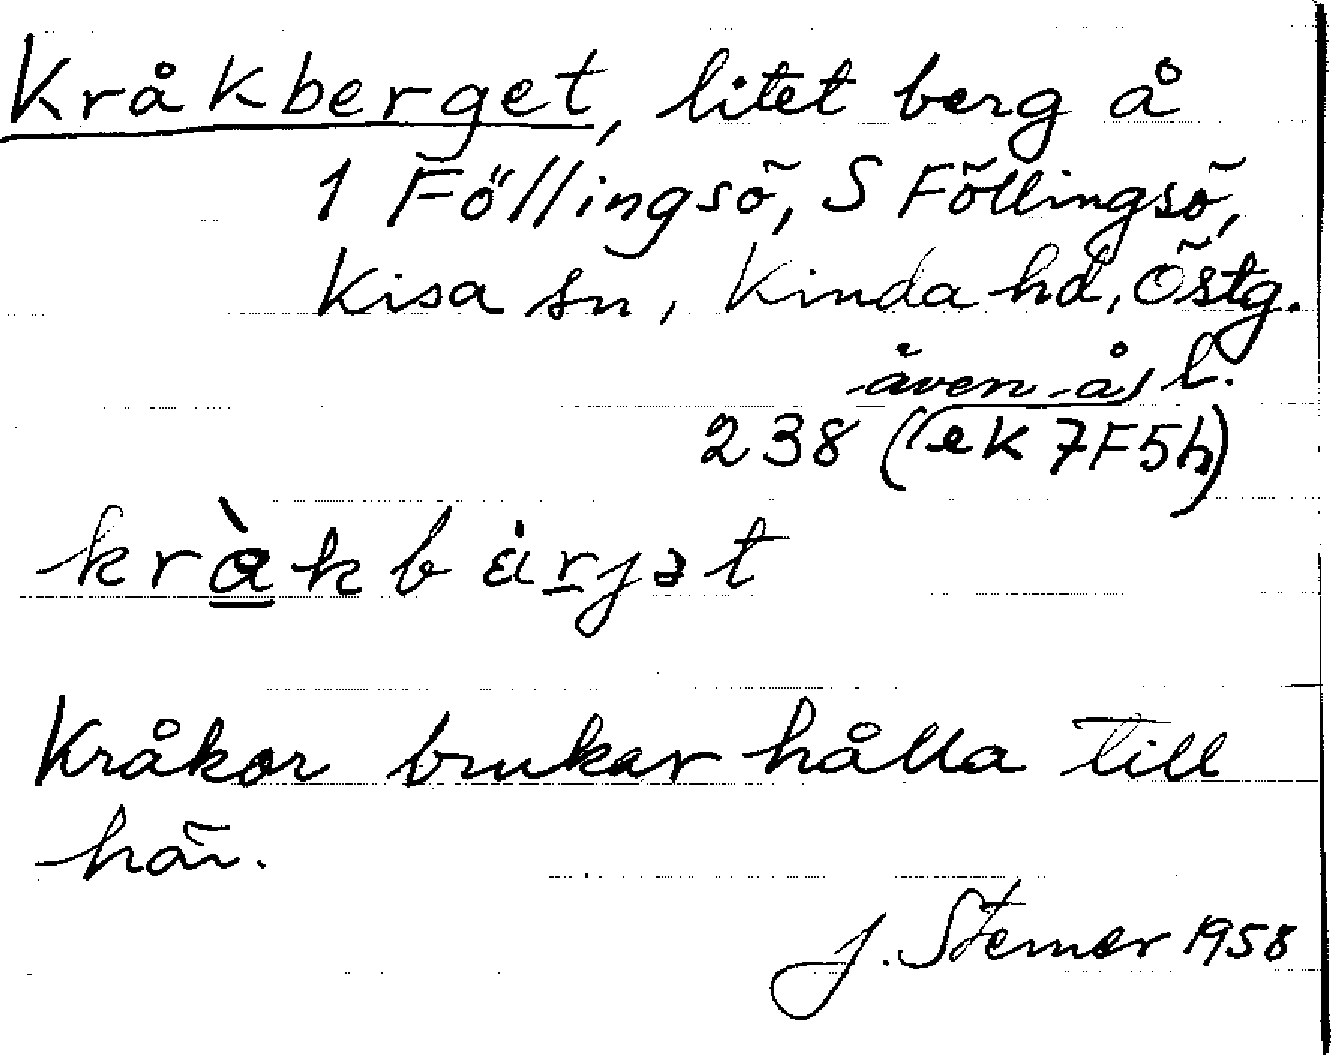 Kråkberget, litet berg å
1 Föllingsö, S Föllingsö,
Kisa sn, Kinda hd, Östg.
även å l.
238 (ek 7F5h)
kràkbärjət
Kråkor brukar hålla till
här.
J. Sterner 1958